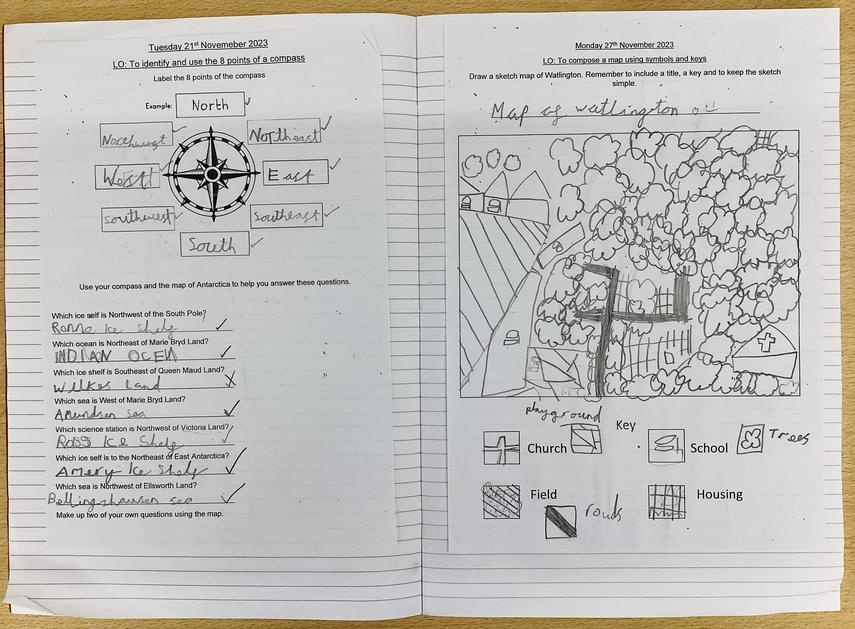 Tuesday 21st Novemeber 2023
LO: To identify and use the 8 points of a compass
Label the 8 points of the compass
Example: North
Northwest
Northeast
West
East
Southwest
Southeast
South
Use your compass and the map of Antarctica to help you answer these questions.
Which ice self is Northwest of the South Pole?
Ronne Ice Shelf
Which ocean is Northeast of Marie Bryd Land?
INDIAN OCEN
Which ice shelf is Southeast of Queen Maud Land?
Wilkes Land
Which sea is West of Marie Bryd Land?
Amundsen Sea
Which science station is Northwest of Victoria Land?
Ross Ice Shelf
Which ice self is to the Northeast of East Antarctica?
Amery Ice Shelf
Which sea is Northwest of Ellsworth Land?
Bellingshausen sea
Make up two of your own questions using the map.
Monday 27th November 2023
LO: To compose a map using symbols and keys
Draw a sketch map of Watlington. Remember to include a title, a key and to keep the sketch
simple.
Map of watlington
playground
Key
Church
School
Trees
Field
roads
Housing